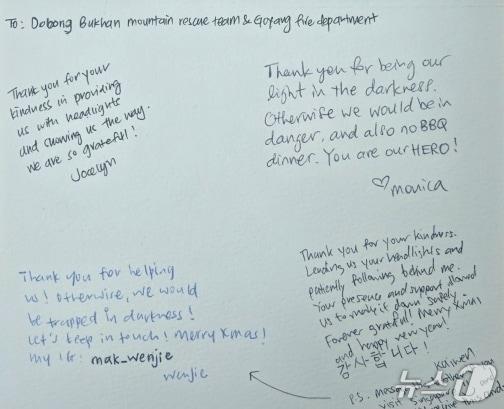 To: Dobong Bukhan mountain rescue team & Goyang fire department
Thank you for your
kindness in providing
us with headlights
and showing us the way.
We are so grateful!
Jocelyn
Thank you for being our
light in the darkness.
Otherwise we would be in
danger, and also no BBQ
dinner. You are our HERO!
♡ monica
Thank you for helping
us! Otherwise, we would
be trapped in darkness!
Let's keep in touch! Merry Xmas!
my IG: mak_wenjie
wenjie
Thank you for your kindness.
Lending us your headlights and
patiently following behind me.
Your presence and support allowed
us to make it down safely.
Forever grateful! Merry Xmas
and happy new year!
감사합니다!
P.S.
visit Singapore
뉴스1